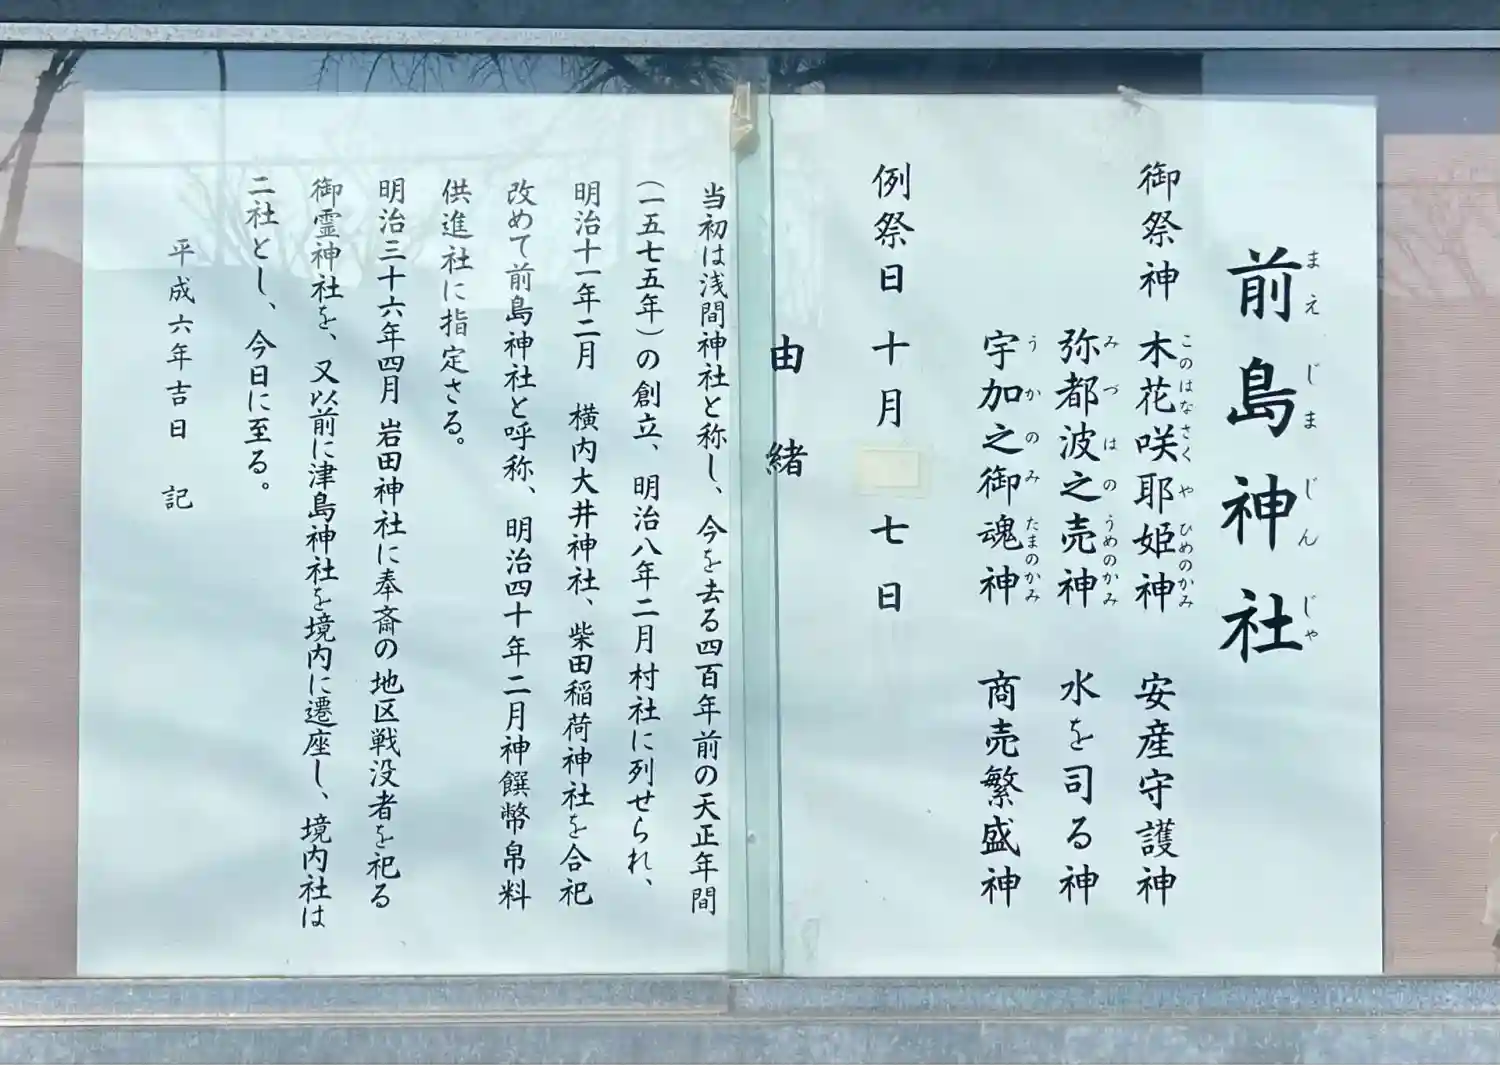 前島神社
まえじまじんじゃ
御祭神 木花咲耶姫神 安産守護神
このはなさくやひめのかみ
弥都波之売神 水を司る神
みづはのうめのかみ
宇加之御魂神 商売繁盛神
うかのみたまのかみ
例祭日 十月 七日
由緒
当初は浅間神社と称し、今を去る四百年前の天正年間
(一五七五年)の創立、明治八年二月村社に列せられ、
明治十一年二月 横内大井神社、柴田稲荷神社を合祀
改めて前島神社と呼称、明治四十年二月神饌幣帛料
供進社に指定さる。
明治三十六年四月 岩田神社に奉斎の地区戦没者を祀る
御霊神社を、又以前に津島神社を境内に遷座し、境内社は
二社とし、今日に至る。
平成六年吉日 記